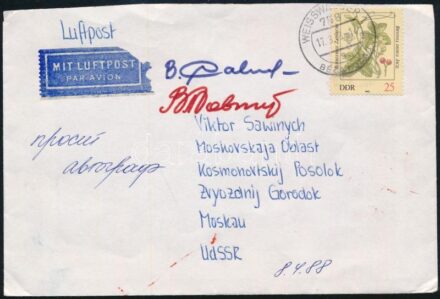 Luftpost
MIT LUFTPOST
PAR AVION
WEISSWASSER
DDR 25
Viktor Sawinych
Moskovskaja Oblast
Kosmonovtskij Posolok
Zvyozdnij Gorodok
Moskau
UdSSR
просит
автограф
8.4.88